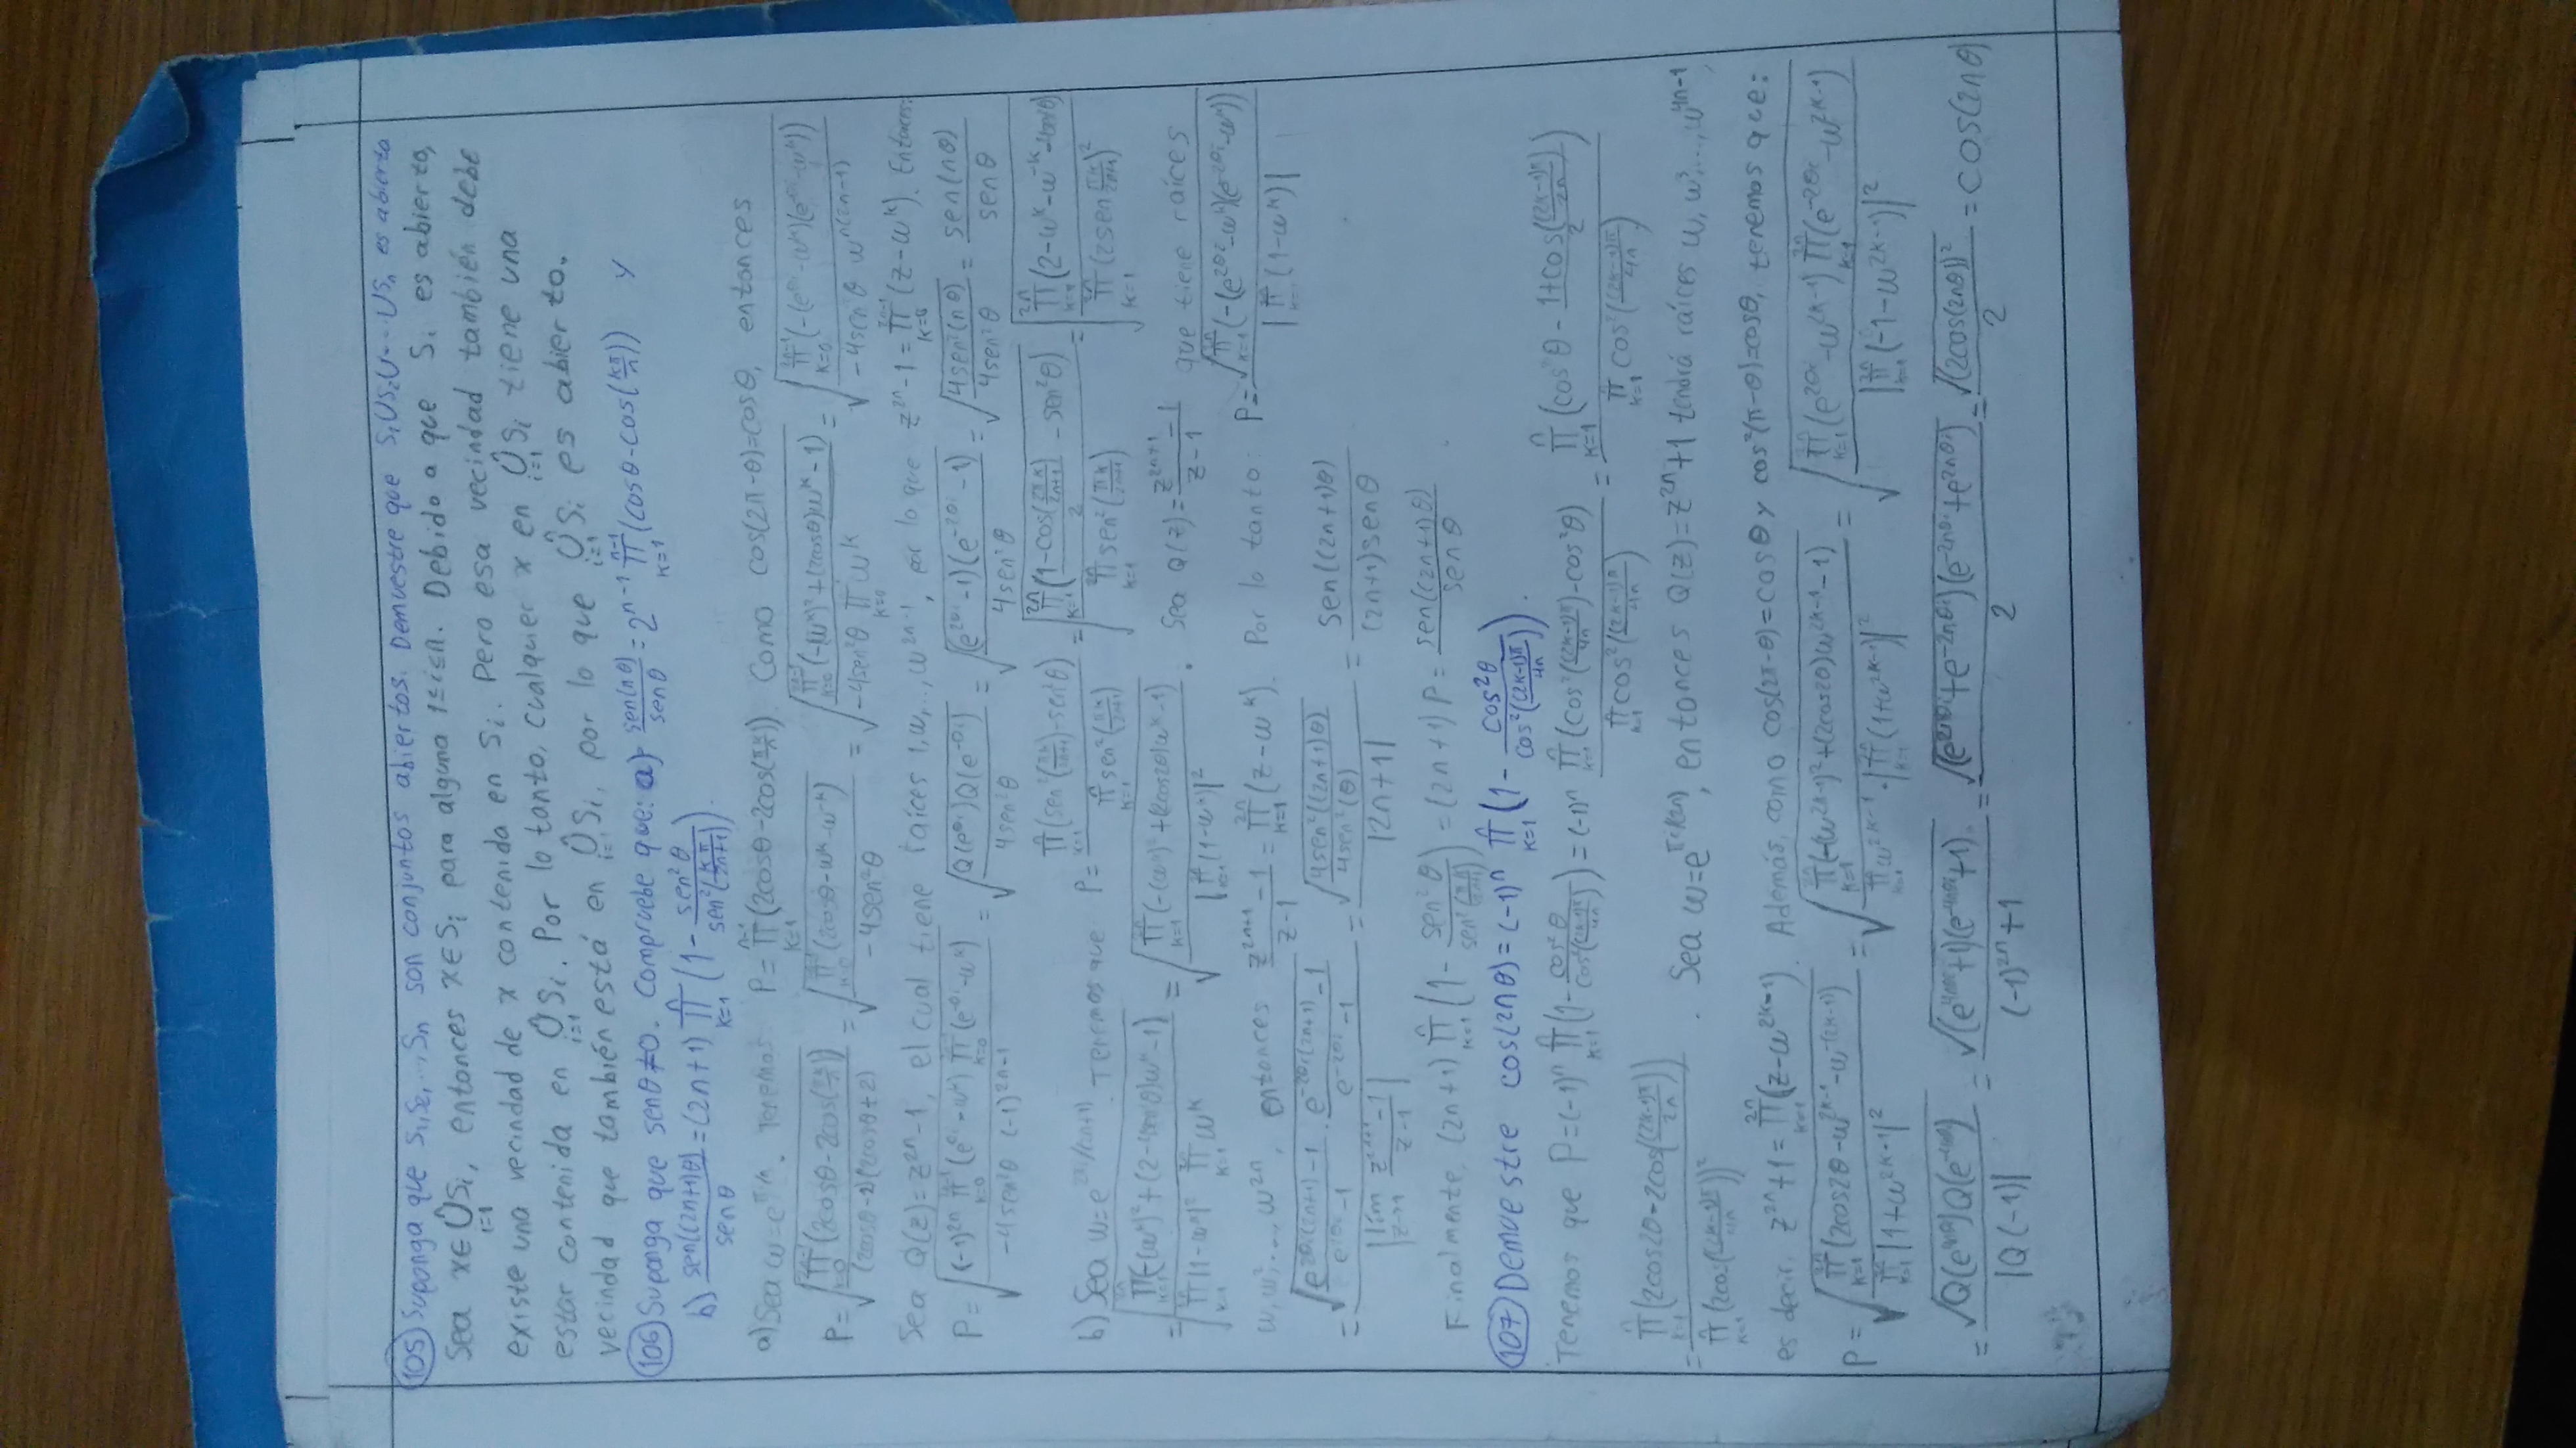 105) Suponga que S₁,S₂,...,Sₙ son conjuntos abiertos. Demuestre que S₁∪S₂∪...∪Sₙ es abierto
Sea x∈⋃ᵢ₌₁ⁿ Sᵢ, entonces x∈Sᵢ para alguna 1≤i≤n. Debido a que Sᵢ es abierto,
existe una vecindad de x contenida en Sᵢ. Pero esa vecindad también debe
estar contenida en ⋃ᵢ₌₁ⁿ Sᵢ. Por lo tanto, cualquier x en ⋃ᵢ₌₁ⁿ Sᵢ tiene una
vecindad que también está en ⋃ᵢ₌₁ⁿ Sᵢ, por lo que ⋃ᵢ₌₁ⁿ Sᵢ es abierto.
106) Suponga que senθ≠0. Compruebe que: a) sen(nθ)/senθ = 2^(n-1) ∏_{k=1}^{n-1} (cosθ-cos(kπ/n)) y
b) sen((2n+1)θ)/senθ = (2n+1) ∏_{k=1}^{n} (1 - sen²θ/sen²(kπ/(2n+1))).
a) Sea ω=e^(πi/n). Tenemos P = ∏_{k=1}^{n-1} (2cosθ-2cos(πk/n)). Como cos(2π-θ)=cosθ, entonces
P = √(∏_{k=0}^{2n-1} (2cosθ-2cos(πk/n)) / ((2cosθ-2)(2cosθ+2))) = √(∏_{k=0}^{2n-1} (2cosθ-ω^k-ω^(-k)) / (-4sen²θ)) = √(∏_{k=0}^{2n-1} (-(ω^k)²+(2cosθ)ω^k-1) / (-4sen²θ ∏_{k=0} ω^k)) = √(∏_{k=0}^{2n-1} (-(e^(θi)-ω^k)(e^(-θi)-ω^k)) / (-4sen²θ ω^(n(2n-1))))
Sea Q(z)=z^(2n)-1, el cual tiene raíces 1,ω,...,ω^(2n-1), por lo que z^(2n)-1 = ∏_{k=0}^{2n-1} (z-ω^k). Entonces:
P = √((-1)^(2n) ∏_{k=0}^{2n-1} (e^(θi)-ω^k) ∏_{k=0}^{2n-1} (e^(-θi)-ω^k) / (-4sen²θ (-1)^(2n-1))) = √(Q(e^(θi))Q(e^(-θi)) / 4sen²θ) = √((e^(2θi)-1)(e^(-2θi)-1) / 4sen²θ) = √(4sen²(nθ) / 4sen²θ) = sen(nθ)/senθ
b) Sea ω=e^(2πi/(2n+1)). Tenemos que P = ∏_{k=1}^{n} (sen²(πk/(2n+1))-sen²θ) / ∏_{k=1}^{n} sen²(πk/(2n+1)) = √(∏_{k=1}^{2n} ((1-cos(2πk/(2n+1)))/2 - sen²θ) / ∏_{k=1}^{2n} sen²(πk/(2n+1))) = √(∏_{k=1}^{2n} (2-ω^k-ω^(-k)-4sen²θ) / ∏_{k=1}^{2n} (2sen πk/(2n+1))²)
= √(∏_{k=1}^{2n} (-(ω^k)²+(2-4sen²θ)ω^k-1) / ∏_{k=1}^{2n} |1-ω^k|² ∏_{k=1}^{2n} ω^k) = √(∏_{k=1}^{2n} (-(ω^k)²+(2cos2θ)ω^k-1) / |∏_{k=1}^{2n} (1-ω^k)|²). Sea Q(z) = (z^(2n+1)-1)/(z-1) que tiene raíces
ω,ω²,...,ω^(2n), entonces (z^(2n+1)-1)/(z-1) = ∏_{k=1}^{2n} (z-ω^k). Por lo tanto: P = √(∏_{k=1}^{2n} (-(e^(2θi)-ω^k)(e^(-2θi)-ω^k))) / |∏_{k=1}^{2n} (1-ω^k)|
= √((e^(2θi(2n+1))-1)/(e^(2θi)-1) · (e^(-2θi(2n+1))-1)/(e^(-2θi)-1)) / |lím_{z→1} (z^(2n+1)-1)/(z-1)| = √(4sen²((2n+1)θ)/4sen²(θ)) / |2n+1| = sen((2n+1)θ)/((2n+1)senθ)
Finalmente, (2n+1) ∏_{k=1}^{n} (1 - sen²θ/sen²(πk/(2n+1))) = (2n+1)P = sen((2n+1)θ)/senθ.
107) Demuestre cos(2nθ) = (-1)^n ∏_{k=1}^{n} (1 - cos²θ/cos²((2k-1)π/4n)).
Tenemos que P = (-1)^n ∏_{k=1}^{n} (1 - cos²θ/cos²((2k-1)π/4n)) = (-1)^n ∏_{k=1}^{n} (cos²((2k-1)π/4n)-cos²θ) / ∏_{k=1}^{n} cos²((2k-1)π/4n) = ∏_{k=1}^{n} (cos²θ - (1+cos((2k-1)π/2n))/2) / ∏_{k=1}^{n} cos²((2k-1)π/4n)
= ∏_{k=1}^{n} (2cos2θ-2cos((2k-1)π/2n)) / ∏_{k=1}^{n} (2cos((2k-1)π/4n))². Sea ω=e^(πi/(2n)), entonces Q(z)=z^(2n)+1 tendrá raíces ω,ω³,...,ω^(4n-1),
es decir, z^(2n)+1 = ∏_{k=1}^{2n} (z-ω^(2k-1)). Además, como cos(2π-θ)=cosθ y cos²(π-θ)=cosθ, tenemos que:
P = √(∏_{k=1}^{2n} (2cos2θ-ω^(2k-1)-ω^(-(2k-1))) / ∏_{k=1}^{2n} |1+ω^(2k-1)|²) = √(∏_{k=1}^{2n} (-(ω^(2k-1))²+(2cos2θ)ω^(2k-1)-1) / ∏_{k=1}^{2n} ω^(2k-1)·|∏_{k=1}^{2n} (1+ω^(2k-1))|²) = √(∏_{k=1}^{2n} (e^(2θi)-ω^(2k-1)) ∏_{k=1}^{2n} (e^(-2θi)-ω^(2k-1)) / |∏_{k=1}^{2n} (-1-ω^(2k-1))|²)
= √(Q(e^(4nθi))Q(e^(-4nθi))) / |Q(-1)| = √((e^(4nθi)+1)(e^(-4nθi)+1)) / ((-1)^(2n)+1) = √((e^(2nθi)+e^(-2nθi))(e^(-2nθi)+e^(2nθi))) / 2 = √((2cos(2nθ))²) / 2 = cos(2nθ)